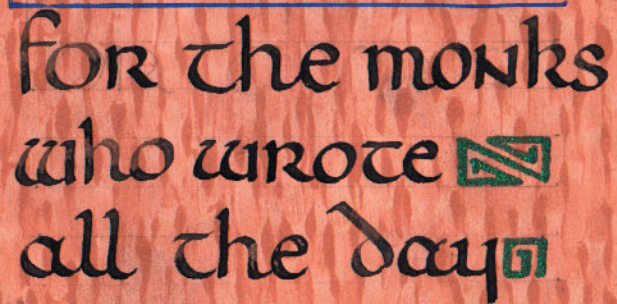 for the monks
who wrote
all the day